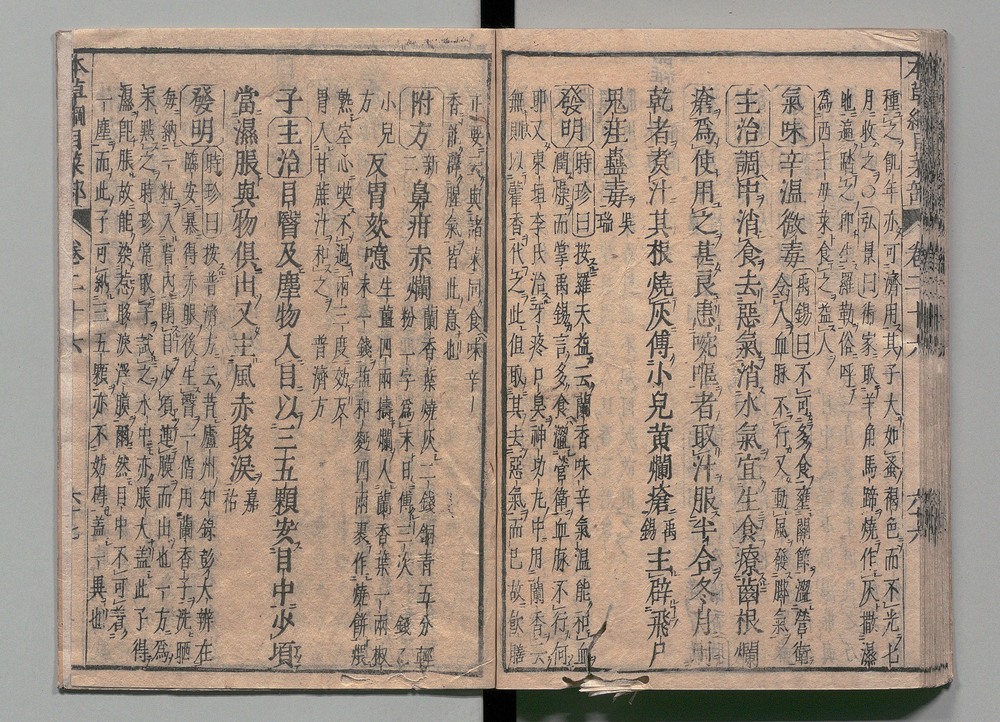 種之飢年亦可濟用其子大如蚤褐色而不光七
月收之○弘景曰術家取羊角馬蹄燒作灰撒濕
地遍踏之卽生羅勒俗呼
爲西王母菜食之益人
氣味辛溫微毒禹錫曰不可多食壅關節澀營衛
令人血脉不行又動風發脚氣
主治調中消食去惡氣消水氣宜生食療齒根爛
瘡爲使用之甚良患啘嘔者取汁服半合冬月用
乾者煑汁其根燒灰傅小兒黃爛瘡禹錫主辟飛尸
鬼疰蠱毒吳瑞
發明時珍曰按羅天益云蘭香味辛氣溫能和血
潤燥而掌禹錫言多食澀營衛血脉不行何
耶又東垣李氏治牙疼口臭神功丸中用蘭香云
無則以藿香代之此但取其去惡氣而已故飲膳
正要云與諸菜同食味辛
香能辟腥氣皆此意也
附方二新鼻疳赤爛蘭香葉燒灰二錢銅青五分輕
粉二字爲末日傅三次 錢乙
小兒
方反胃欬噫生薑四兩擣爛入蘭香葉一兩椒
末一錢鹽和麪四兩裹作燒餅煨
熟空心喫不過兩三度效反
胃入甘蔗汁和之 普濟方
子主治目瞖及塵物入目以三五顆安目中少頃
當濕脹與物俱出又主風赤眵淚嘉祐
發明時珍曰按普濟方云昔廬州知錄彭大辨在
臨安暴得赤眼後生瞖一僧用蘭香子洗晒
每納一粒入眥內閉目少頃連膜而出也一方爲
末點之時珍常取子試之水中亦脹大蓋此子得
濕卽脹故能染惹眵淚浮膜爾然目中不可着
一塵而此子可納三五顆亦不妨碍蓋一異也
本草綱目菜部 卷二十六 六十七